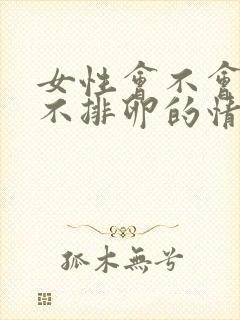 女性會不會
不排卵的情
孤木無兮